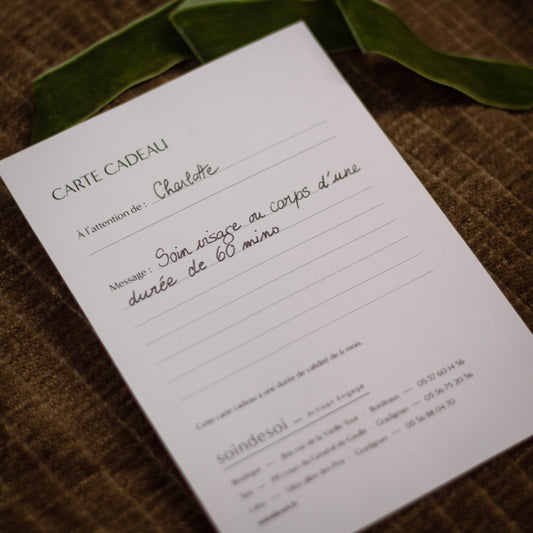 CARTE CADEAU
À l'attention de : Charlotte
Message : Soin visage ou corps d'une
durée de 60 mins
Cette carte cadeau a une durée de validité de 6 mois.
soindesoi — Artisan Engagé
Boutique — rue de la Vieille Tour - Bordeaux — 05 57 60 14 56
Spa — cours du Général de Gaulle - Gradignan — 05 56 75 20 56
Labo — allée des Pins - Gradignan — 05 56 88 04 70